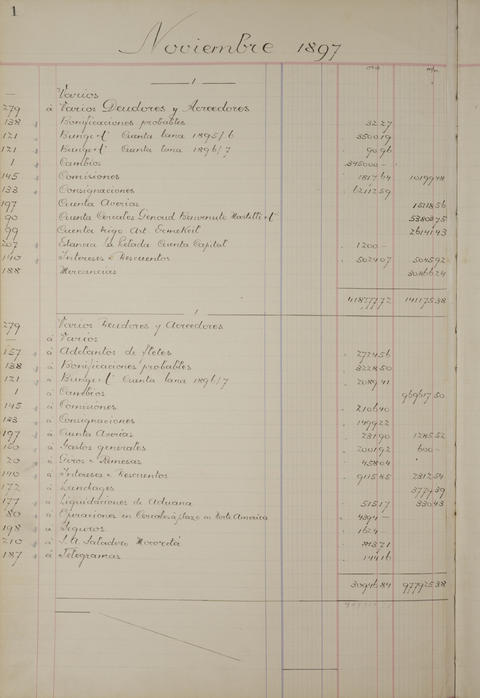 1
Noviembre 1897
1
— Varios
279 à Varios Deudores y Acreedores
138 " Bonificaciones probables 3227
121 " Bunge & Cuenta lana 1895/6 350019
121 " Bunge & Cuenta lana 1896/7 9096
1 " Cambios 345000 –
145 " Comisiones 181764 1019948
133 " Consignaciones 6211259
197 Cuenta Averias 1521856
90 Cuenta Cereales Genoud Benvenuto Martelli &
99 Cuenta trigo Art.
207 " Estancia la Pelada Cuenta Capital 1200 –
140 " Intereses & Descuentos 502407 504592
188 Mercancias
41877772 14117538
1
279 Varios Deudores y Acreedores
— à Varios
157 " à Adelantos de fletes 272456
138 " à Bonificaciones probables 322850
121 " à Bunge & Cuenta lana 1896/7 208941
1 à Cambios 96961750
145 " à Comisiones 210640
133 " à Consignaciones 149922
197 " à Cuenta Averias 23190 128552
160 " à Gastos generales 200192 600 –
20 " à Giros & Remesas 45804
140 " à Intereses & Descuentos 911585 281254
172 à Landages 377439
177 " à Liquidaciones de Aduana 51517 33043
80 " à Operaciones en Cereales á plazo en Norte America 4394 –
198 " à Seguros 1624 –
210 " à S.A. Saladero
187 " à Telegramas 14416
3094684 97792538